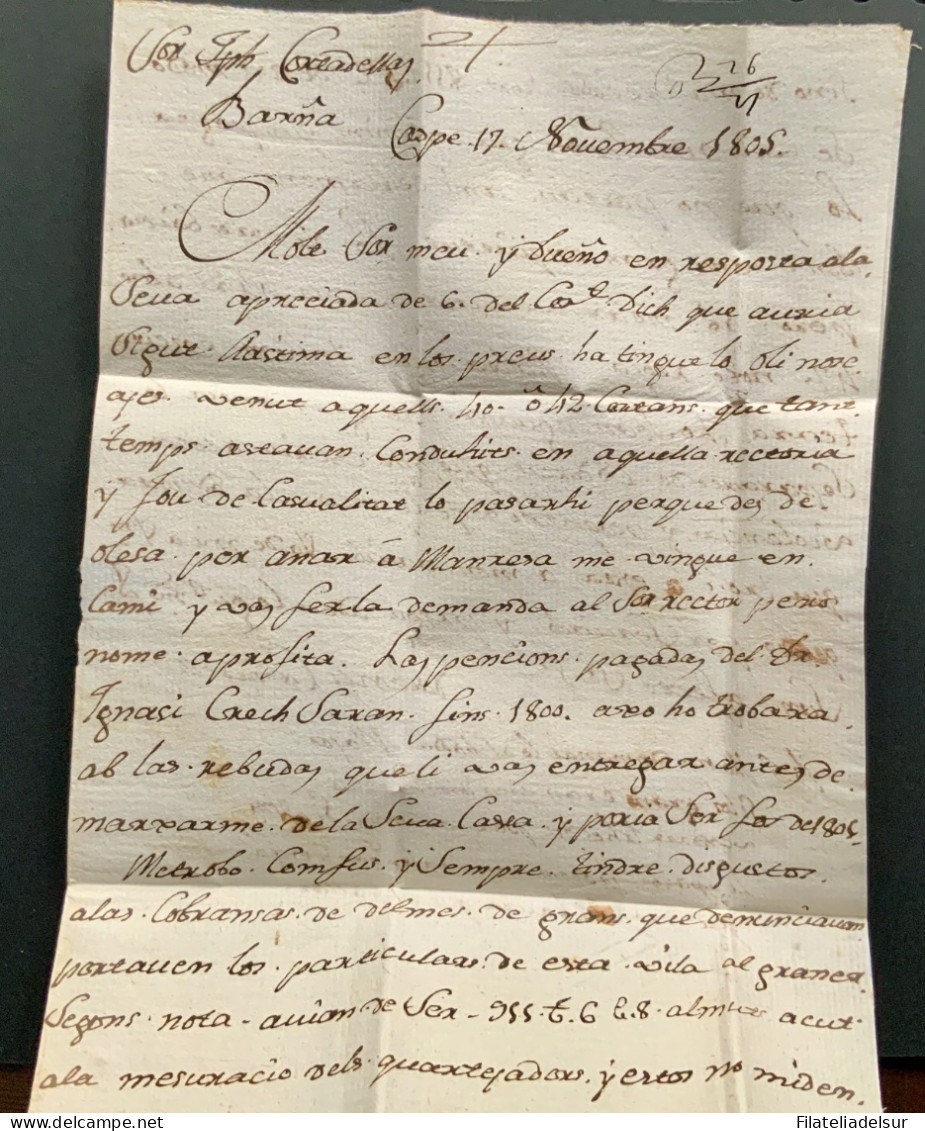 Sor Jph Coreadellas
Barña
R 26
Caspe 17. Novembre 1805.
Molt Sor meu y Dueño en resposta ala
Seua apreciada de 6. del Cor.t Dich que auria
Sigut llastima en los preus ha tingut lo oli no se
ages venut aquells 40 ô 42 Cortans que tant
temps astauan Conduhits en aquella rectoria
y fou de Casualitat lo pasarhi perque des de
olesa por anar á Manresa me vingue en
Cami y vas ferla demanda al Sor rector pero
nome aprofita. Las pencions pagadas del Dr
Ignasi Crech Saran fins 1800. axo ho trobara
ab las rebudas queli vas entregar antes de
marxarme de la Seua Cassa y poria Ser fos de 1805
Metrobo Comfus y Sempre tindre disgustos
alas Cobransas de delmes de grans que denunciauan
portauen los particulars de esta vila al graner
Segons nota auian de Ser 955. t. 6 8. almuts acut
ala mesuracio dels quartejadors y estos no miden
Filateliadelsur